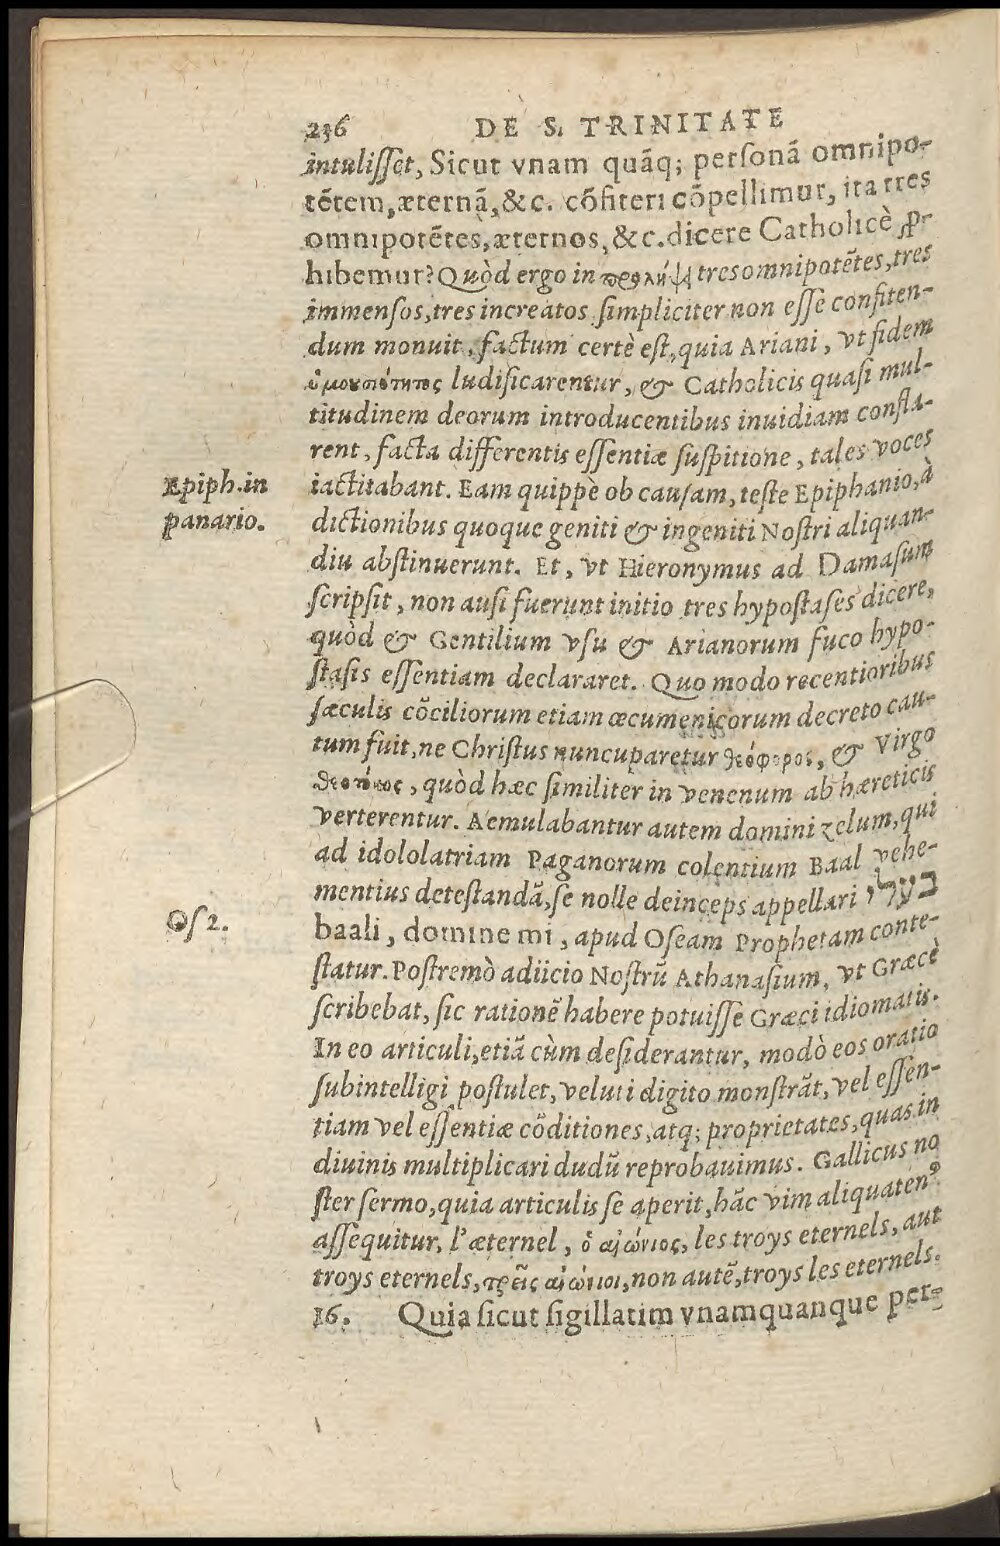 236 DE S. TRINITATE
intulisset, Sicut vnam quãq; personã omnipo-
tẽtem, æternã, &c. cõfiteri cõpellimur, ita tres
omnipotẽtes, æternos, &c. dicere Catholicè ꝓ-
hibemur? Quòd ergo in προλήψει tres omnipotẽtes, tres
immensos, tres increatos simpliciter non esse confiten-
dum monuit, factum certè est, quia Ariani, vt fidem
ὁμουσιότητος ludificarentur, & Catholicis quasi mul-
titudinem deorum introducentibus inuidiam confla-
rent, facta differentis essentiæ suspitione, tales voces
Epiph. in
panario.
iactitabant. Eam quippè ob causam, teste Epiphanio, à
dictionibus quoque geniti & ingeniti Nostri aliquan-
diu abstinuerunt. Et, vt Hieronymus ad Damasum
scripsit, non ausi fuerunt initio tres hypostases dicere,
quòd & Gentilium vsu & Arianorum fuco hypo-
stasis essentiam declararet. Quo modo recentioribus
sæculis cõciliorum etiam œcumenicorum decreto cau-
tum fuit, ne Christus nuncuparetur θεόφορος, & Virgo
θεοτόκος, quòd hæc similiter in venenum ab hæreticis
verterentur. Aemulabantur autem domini zelum, qui
ad idololatriam Paganorum colentium Baal vehe-
mentius detestandã, se nolle deinceps appellari בעלי
Os 2.
baali, domine mi, apud Oseam Prophetam conte-
statur. Postremò adiicio Nostrũ Athanasium, vt Græcè
scribebat, sic rationẽ habere potuisse Græci idiomatis.
In eo articuli, etiã cùm desiderantur, modò eos oratio
subintelligi postulet, veluti digito monstrãt, vel essen-
tiam vel essentiæ cõditiones, atq; proprietates, quas in
diuinis multiplicari dudũ reprobauimus. Gallicus no
ster sermo, quia articulis se aperit, hãc vim aliquatenꝰ
assequitur, l'æternel, ὁ αἰώνιος, les troys eternels, aut
troys eternels, τρεῖς αἰώνιοι, non autẽ, troys les eternels.
16. Quia sicut sigillatim vnamquanque per-